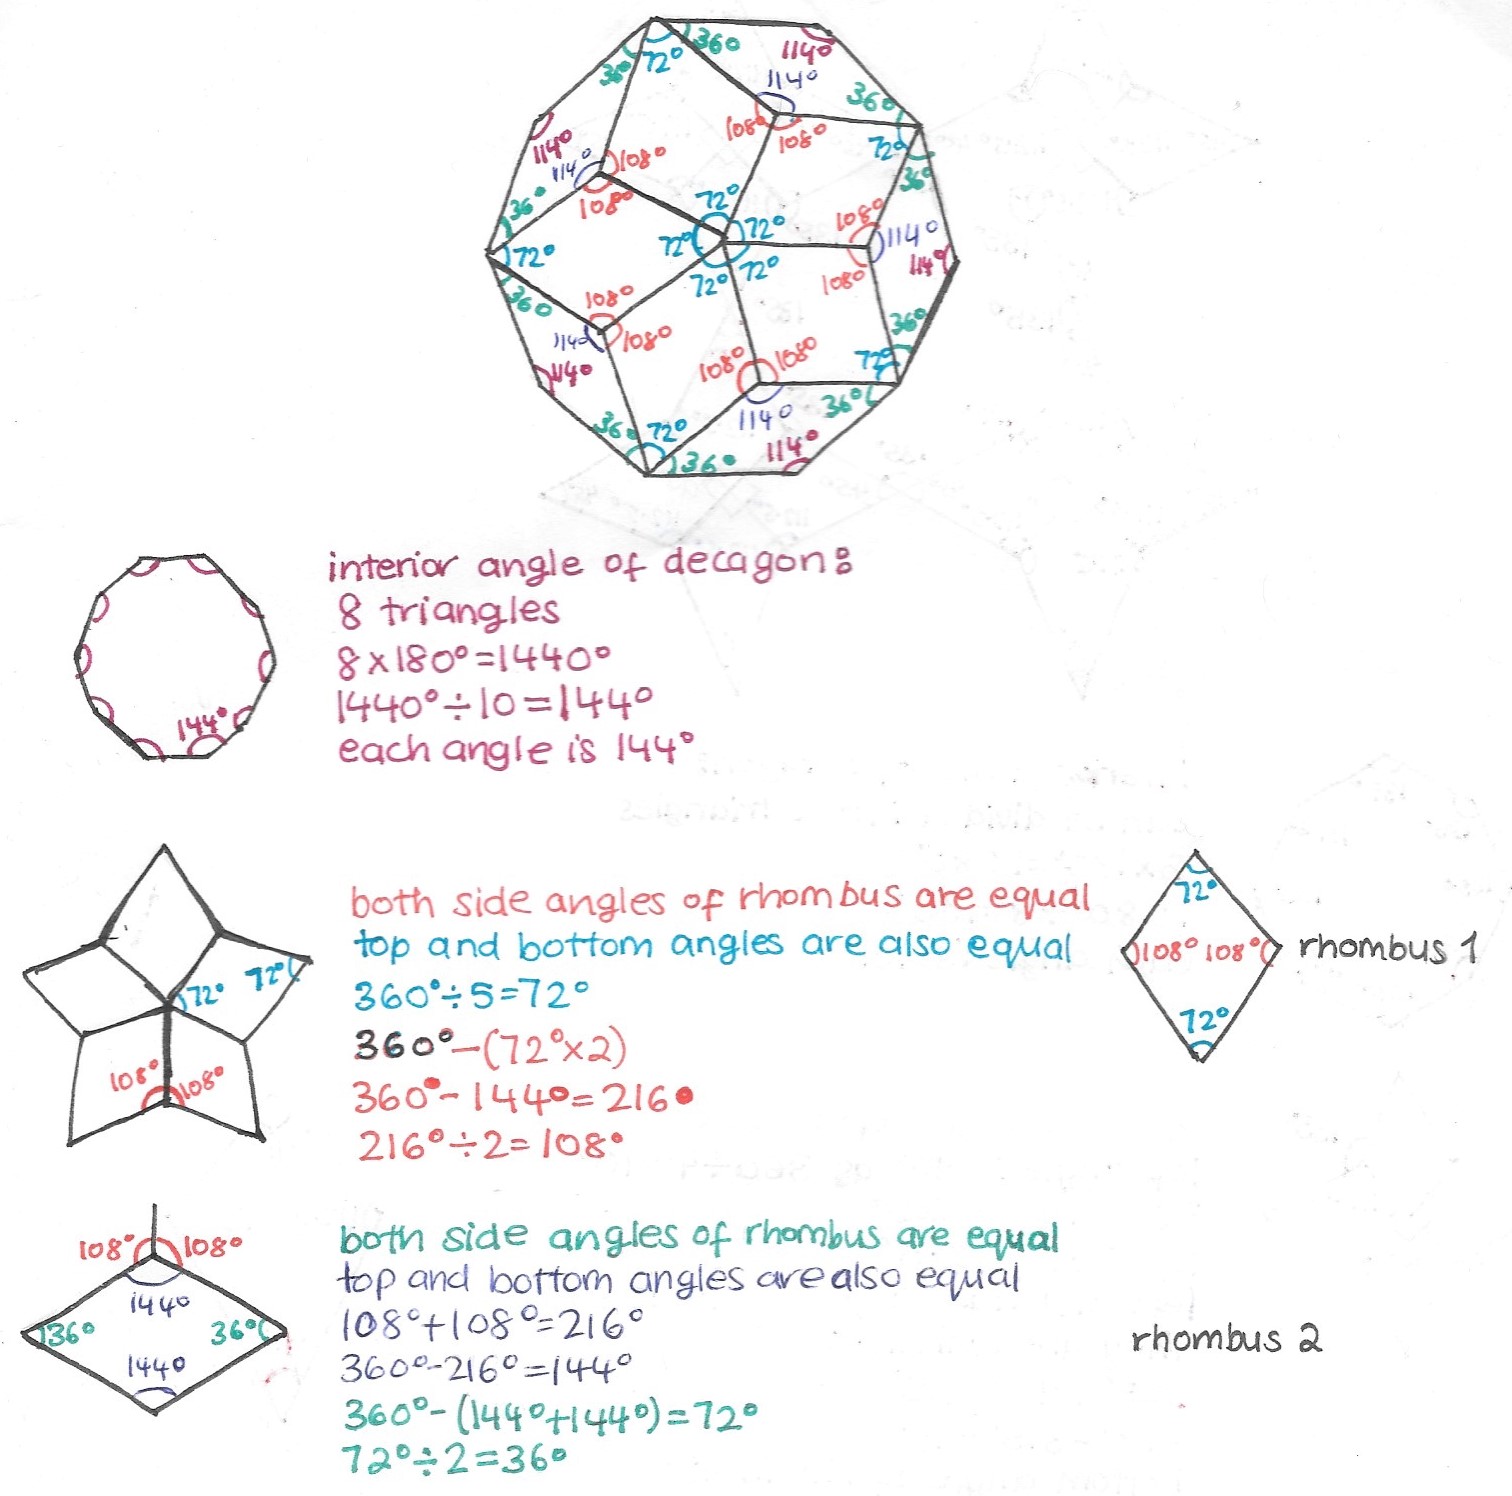 36° 72° 36° 114°
114° 36°
36° 72° 36° 114°
114° 108° 108° 108° 72° 36°
36° 108° 72° 72° 108° 114° 114°
72° 72° 72° 72° 108° 36°
36° 108° 108° 108° 108° 72°
114° 114° 114° 36°
36° 72° 36° 114°
interior angle of decagon:
8 triangles
8x180°=1440°
1440°÷10=144°
each angle is 144°
144°
both side angles of rhombus are equal
top and bottom angles are also equal
360°÷5=72°
360°-(72°x2)
360°-144°=216°
216°÷2=108°
72° 72°
108° 108°
72°
108° 108°
72°
rhombus 1
108° 108°
144°
36° 36°
144°
both side angles of rhombus are equal
top and bottom angles are also equal
108°+108°=216°
360°-216°=144°
360°-(144°+144°)=72°
72°÷2=36°
rhombus 2